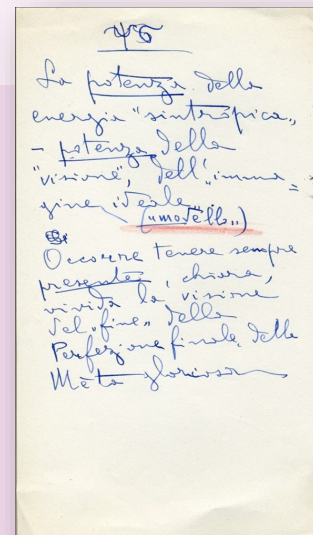 ΨΣ
La potenza della
energia "sintròpica„
- potenza della
"visione", dell'"imma=
gine ideale„.
("modello„)
Occorre tenere sempre
presente, chiara,
vivida la visione
del „fine„ della
Perfezione finale, della
Mèta gloriosa